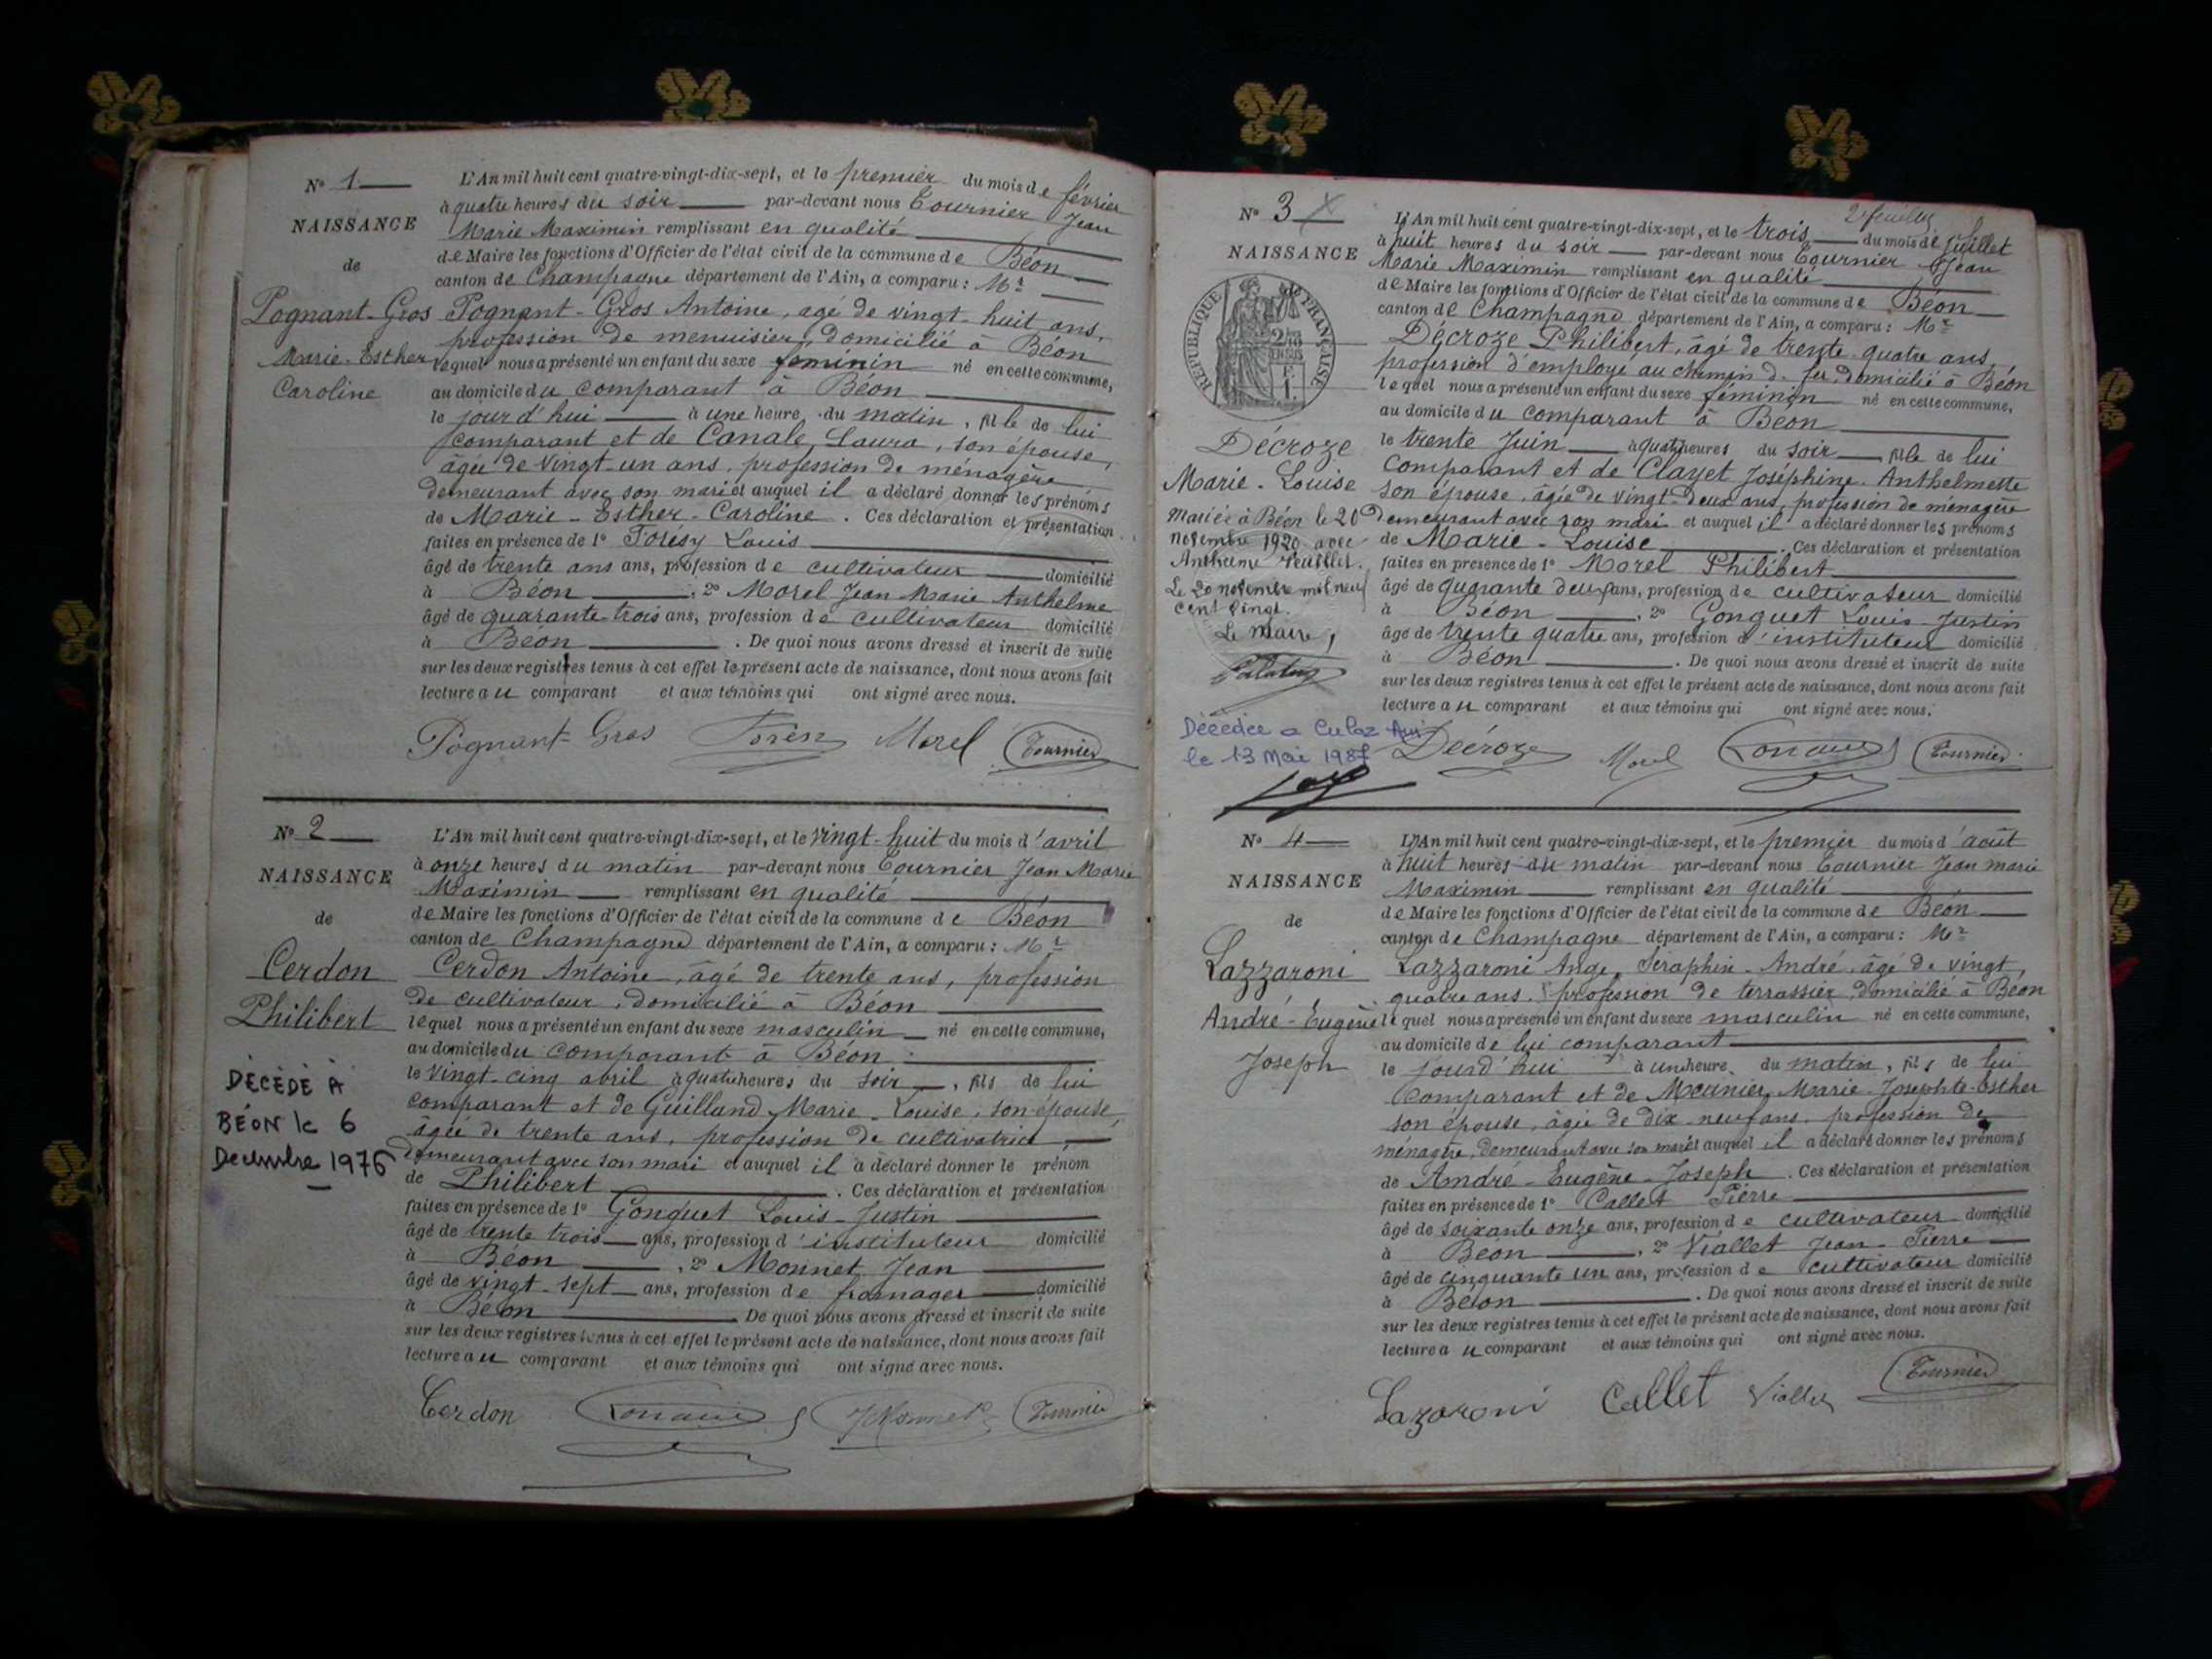 N° 1
NAISSANCE
de
Pognant-Gros
Marie-Esther
Caroline
L'An mil huit cent quatre-vingt-dix-sept, et le premier du mois de février
à quatre heures du soir par-devant nous Tournier Jean
Marie Maximin remplissant en qualité
de Maire les fonctions d'Officier de l'état civil de la commune de Béon
canton de Champagne département de l'Ain, a comparu : Mr
Pognant-Gros Antoine, agé de vingt-huit ans,
profession de menuisier, domicilié à Béon
lequel nous a présenté un enfant du sexe feminin né en cette commune,
au domicile du comparant à Béon
le jour d'hui à une heure du matin, fille de lui
comparant et de Canale Laura, son épouse,
âgée de vingt-un ans, profession de ménagère
demeurant avec son mari et auquel il a déclaré donner les prénoms
de Marie-Esther-Caroline. Ces déclaration et présentation
faites en présence de 1° Louis
âgé de trente ans ans, profession de cultivateur domicilié
à Béon, 2° Morel Jean Marie Anthelme
âgé de quarante-trois ans, profession de cultivateur domicilié
à Béon. De quoi nous avons dressé et inscrit de suite
sur les deux registres tenus à cet effet le présent acte de naissance, dont nous avons fait
lecture au comparant et aux témoins qui ont signé avec nous.
Pognant-Gros Morel Tournier
N° 2
NAISSANCE
de
Cerdon
Philibert
DÉCÉDÉ À
BÉON le 6
Decembre 1976
L'An mil huit cent quatre-vingt-dix-sept, et le vingt-huit du mois d'avril
à onze heures du matin par-devant nous Tournier Jean Marie
Maximin remplissant en qualité
de Maire les fonctions d'Officier de l'état civil de la commune de Béon
canton de Champagne département de l'Ain, a comparu : Mr
Cerdon Antoine, âgé de trente ans, profession
de cultivateur, domicilié à Béon
lequel nous a présenté un enfant du sexe masculin né en cette commune,
au domicile du comparant à Béon
le vingt-cinq avril à quatre heures du soir, fils de lui
comparant et de Guilland Marie-Louise, son épouse,
âgée de trente ans, profession de cultivatrice,
demeurant avec son mari et auquel il a déclaré donner le prénom
de Philibert. Ces déclaration et présentation
faites en présence de 1° Gonguet Louis-Justin
âgé de trente trois ans, profession d'instituteur domicilié
à Béon, 2° Monnet Jean
âgé de vingt-sept ans, profession de fromager domicilié
à Béon De quoi nous avons dressé et inscrit de suite
sur les deux registres tenus à cet effet le présent acte de naissance, dont nous avons fait
lecture au comparant et aux témoins qui ont signé avec nous.
Cerdon JMonnet Tournier
N° 3
NAISSANCE
RÉPUBLIQUE FRANÇAISE
Décroze
Marie-Louise
Mariée à Béon le 20
novembre 1920 avec
Anthelme
Le 20 novembre mil neuf
cent vingt.
Le Maire,
Décédée a Culoz Ain
le 13 Mai 1987
2e feuillet
L'An mil huit cent quatre-vingt-dix-sept, et le trois du mois de Juillet
à huit heures du soir par-devant nous Tournier Jean
Marie Maximin remplissant en qualité
de Maire les fonctions d'Officier de l'état civil de la commune de Béon
canton de Champagne département de l'Ain, a comparu : Mr
Décroze Philibert, âgé de trente-quatre ans,
profession d'employé au chemin de fer, domicilié à Béon
lequel nous a présenté un enfant du sexe féminin né en cette commune,
au domicile du comparant à Béon
le trente Juin à quatre heures du soir fille de lui
comparant et de Clayet Joséphine-Anthelmette
son épouse, âgée de vingt-deux ans, profession de ménagère
demeurant avec son mari et auquel il a déclaré donner les prénoms
de Marie-Louise. Ces déclaration et présentation
faites en présence de 1° Morel Philibert
âgé de quarante deux ans, profession de cultivateur domicilié
à Béon, 2° Gonguet Louis-Justin
âgé de trente quatre ans, profession d'instituteur domicilié
à Béon. De quoi nous avons dressé et inscrit de suite
sur les deux registres tenus à cet effet le présent acte de naissance, dont nous avons fait
lecture au comparant et aux témoins qui ont signé avec nous.
Décroze Morel Tournier
N° 4
NAISSANCE
de
Lazzaroni
André-Eugène
Joseph
L'An mil huit cent quatre-vingt-dix-sept, et le premier du mois d'août
à huit heures du matin par-devant nous Tournier Jean marie
Maximin remplissant en qualité
de Maire les fonctions d'Officier de l'état civil de la commune de Béon
canton de Champagne département de l'Ain, a comparu : Mr
Lazzaroni Ange-Séraphin-André, âgé de vingt
quatre ans, profession de terrassier, domicilié à Béon
lequel nous a présenté un enfant du sexe masculin né en cette commune,
au domicile de lui comparant
le jourd'hui à une heure du matin, fils de lui
comparant et de Meunier Marie-Josephte-Esther
son épouse, âgée de dix-neuf ans, profession de
ménagère, demeurant avec son mari et auquel il a déclaré donner les prénoms
de André-Eugène-Joseph. Ces déclaration et présentation
faites en présence de 1° Callet Pierre
âgé de soixante onze ans, profession de cultivateur domicilié
à Béon, 2° Viallet Jean-Pierre
âgé de cinquante un ans, profession de cultivateur domicilié
à Béon. De quoi nous avons dressé et inscrit de suite
sur les deux registres tenus à cet effet le présent acte de naissance, dont nous avons fait
lecture au comparant et aux témoins qui ont signé avec nous.
Lazaroni Callet Viallet Tournier